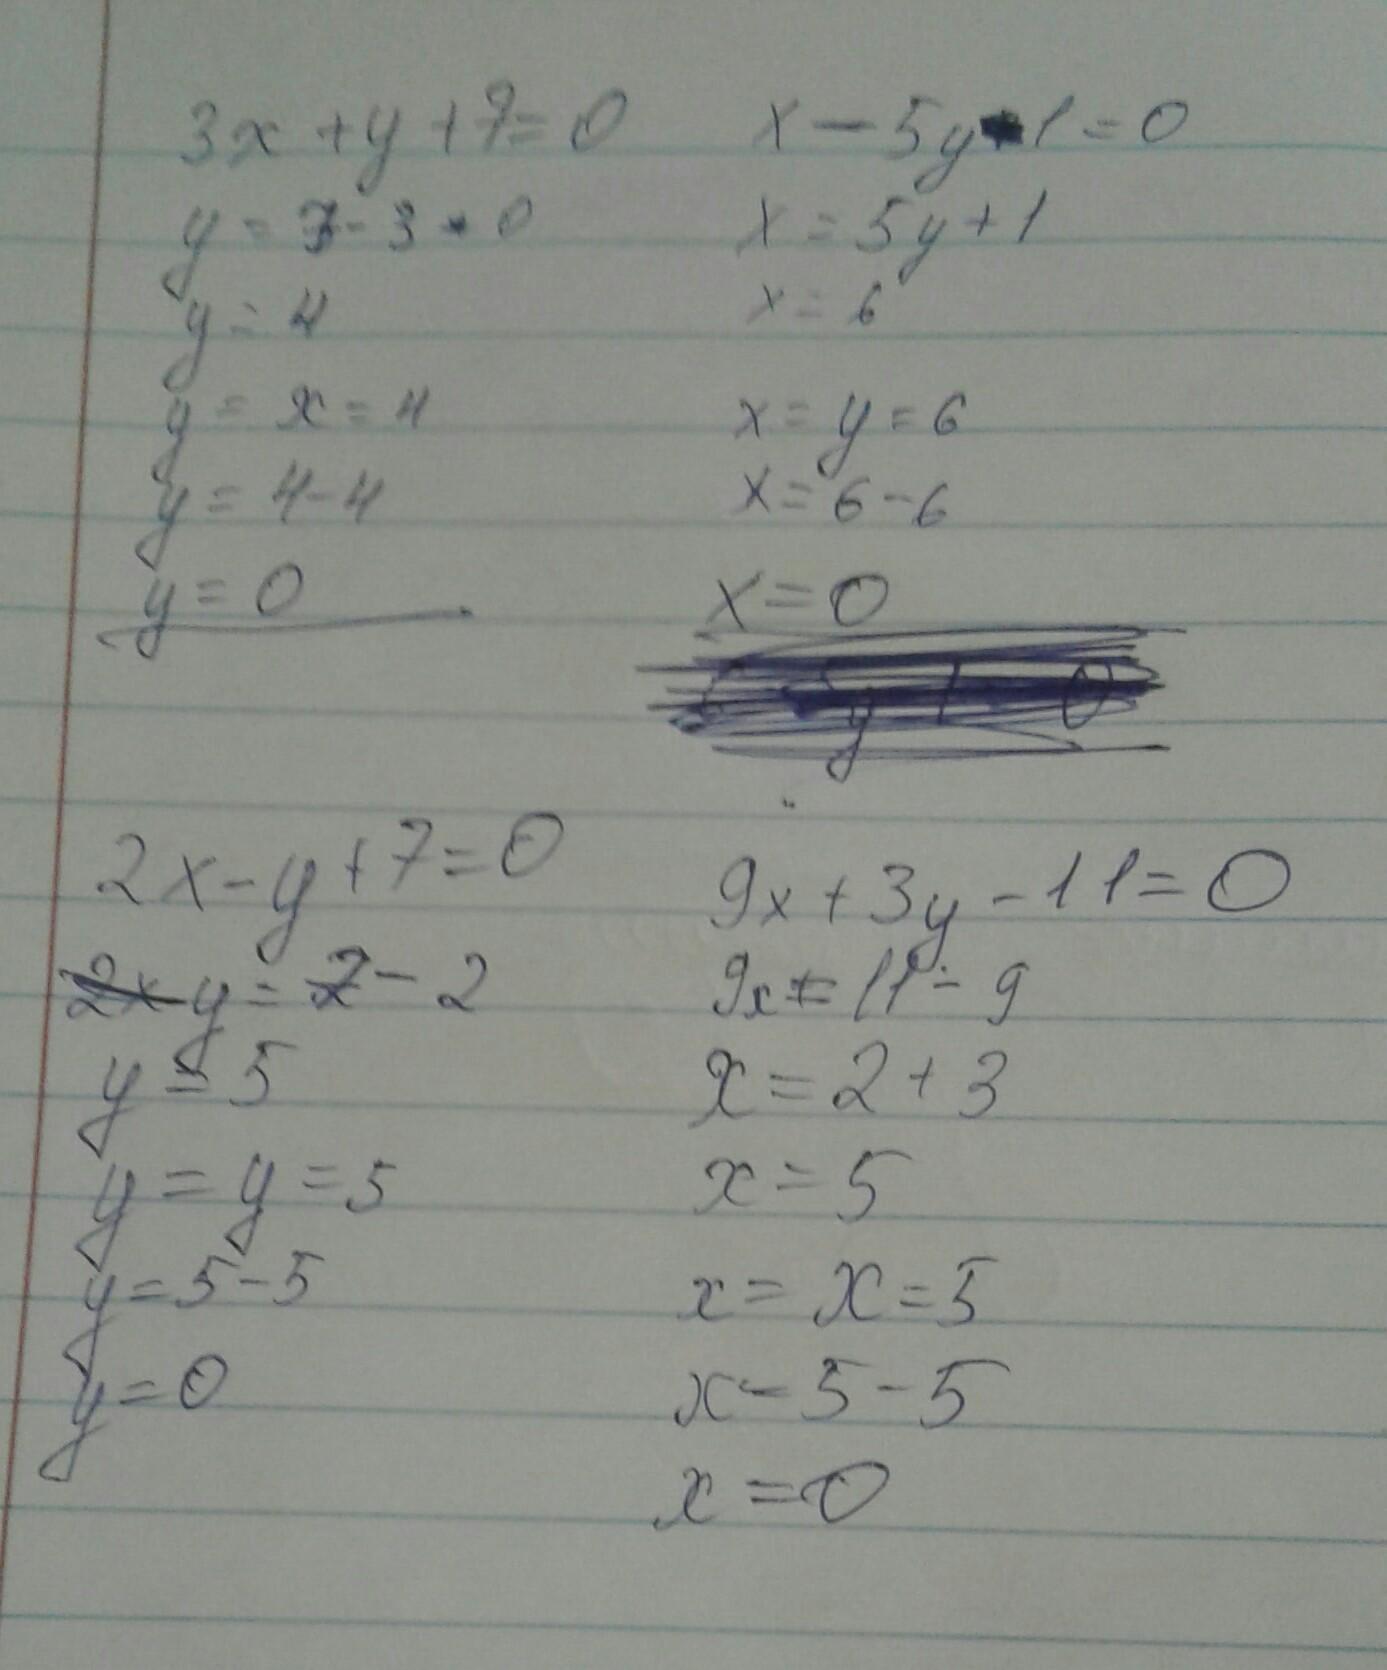 3x + y + 7 = 0
y = 7 - 3 · 0
y = 4
y = x = 4
y = 4 - 4
y = 0
x - 5y - 1 = 0
x = 5y + 1
x = 6
x = y = 6
x = 6 - 6
x = 0
2x - y + 7 = 0
y = 7 - 2
y = 5
y = y = 5
y = 5 - 5
y = 0
9x + 3y - 11 = 0
9x = 11 - 9
x = 2 + 3
x = 5
x = x = 5
x = 5 - 5
x = 0